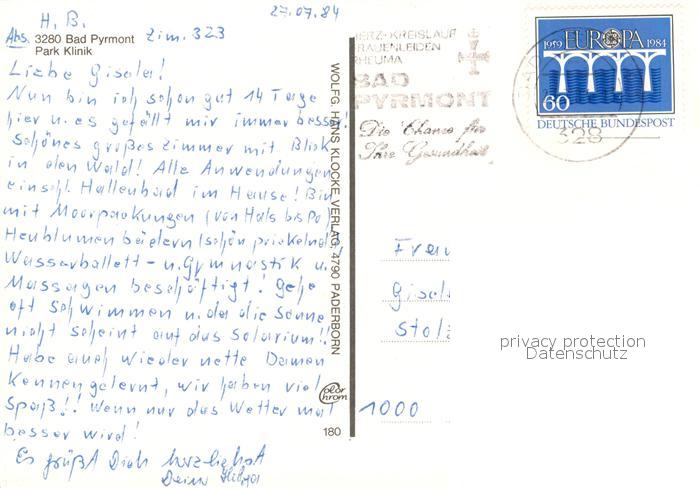 27.07.84
H. B.
Abs. 3280 Bad Pyrmont Zim. 323
Park Klinik
Liebe Gisela!
Nun bin ich schon gut 14 Tage
hier u. es gefällt mir immer besser!
Schönes großes Zimmer mit Blick
in den Wald! Alle Anwendungen
einschl. Hallenbad im Hause! Bin
mit Moorpackungen (von Hals bis Po)
Heublumenbädern (schön prickelnd)
Wasserballett- u. Gymnastik u.
Massagen beschäftigt! Gehe
oft Schwimmen u. da die Sonne
nicht scheint auf das Solarium!!
Habe auch wieder nette Damen
kennengelernt, wir haben viel
Spaß!! Wenn nur das Wetter mal
besser wird!
Es grüßt Dich herzlichst
Deine
WOLFG. HANS KLOCKE VERLAG, 4790 PADERBORN
color
chrom
180
HERZ-KREISLAUF
FRAUENLEIDEN
RHEUMA
BAD
PYRMONT
Die Chance für
Ihre Gesundheit
1959 EUROPA 1984
60
DEUTSCHE BUNDESPOST
328
Frau
Gisel
Stolz
1000
privacy protection
Datenschutz